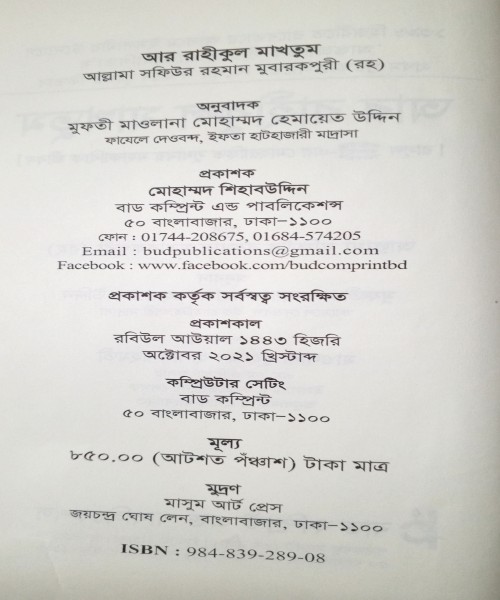 আর রাহীকুল মাখতুম
আল্লামা সফিউর রহমান মুবারকপুরী (রহ)
অনুবাদক
মুফতী মাওলানা মোহাম্মদ হেমায়েত উদ্দিন
ফাযেলে দেওবন্দ, ইফতা হাটহাজারী মাদ্রাসা
প্রকাশক
মোহাম্মদ শিহাবউদ্দিন
বাড কম্প্রিন্ট এন্ড পাবলিকেশন্স
৫০ বাংলাবাজার, ঢাকা-১১০০
ফোন : 01744-208675, 01684-574205
Email : budpublications@gmail.com
Facebook : www.facebook.com/budcomprintbd
প্রকাশক কর্তৃক সর্বস্বত্ব সংরক্ষিত
প্রকাশকাল
রবিউল আউয়াল ১৪৪৩ হিজরি
অক্টোবর ২০২১ খ্রিস্টাব্দ
কম্পিউটার সেটিং
বাড কম্প্রিন্ট
৫০ বাংলাবাজার, ঢাকা-১১০০
মূল্য
৮৫০.০০ (আটশত পঁঞ্চাশ) টাকা মাত্র
মুদ্রণ
মাসুম আর্ট প্রেস
জয়চন্দ্র ঘোষ লেন, বাংলাবাজার, ঢাকা-১১০০
ISBN : 984-839-289-08